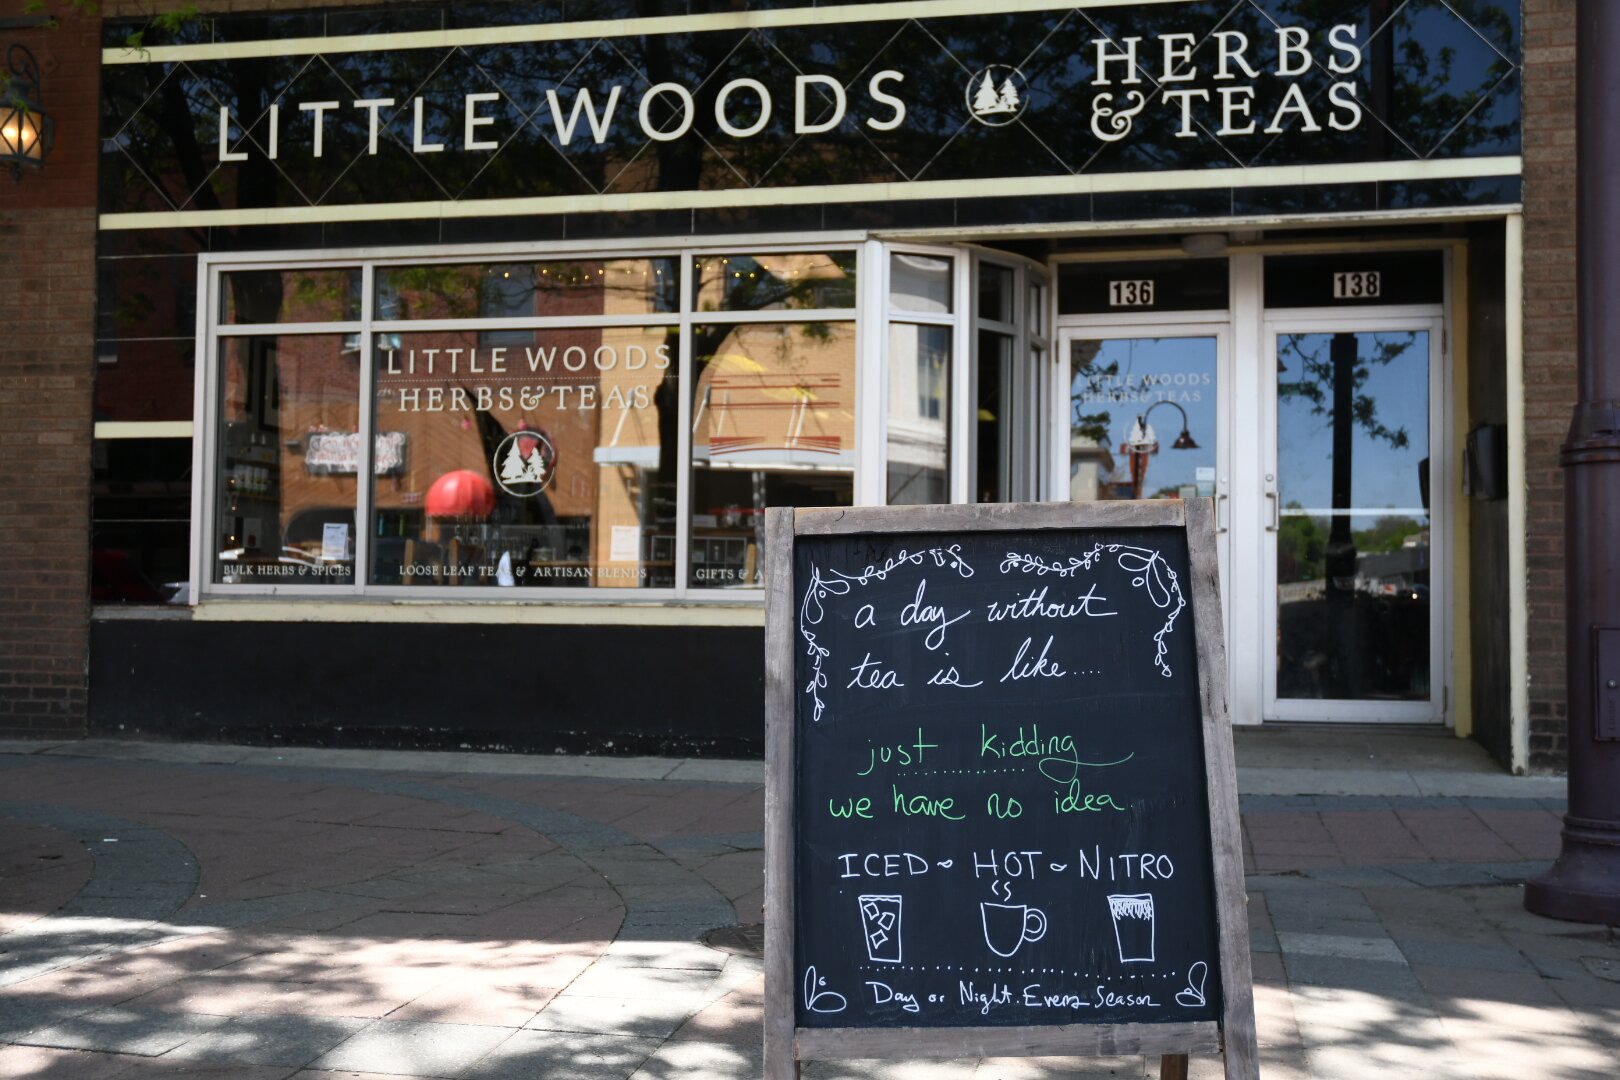 LITTLE WOODS
HERBS
& TEAS
136
138
LITTLE WOODS
HERBS & TEAS
LITTLE WOODS
HERBS & TEAS
BULK HERBS & SPICES
LOOSE LEAF TEAS & ARTISAN BLENDS
GIFTS & A
a day without
tea is like....
just kidding
we have no idea.
ICED ~ HOT ~ NITRO
Day or Night. Every Season